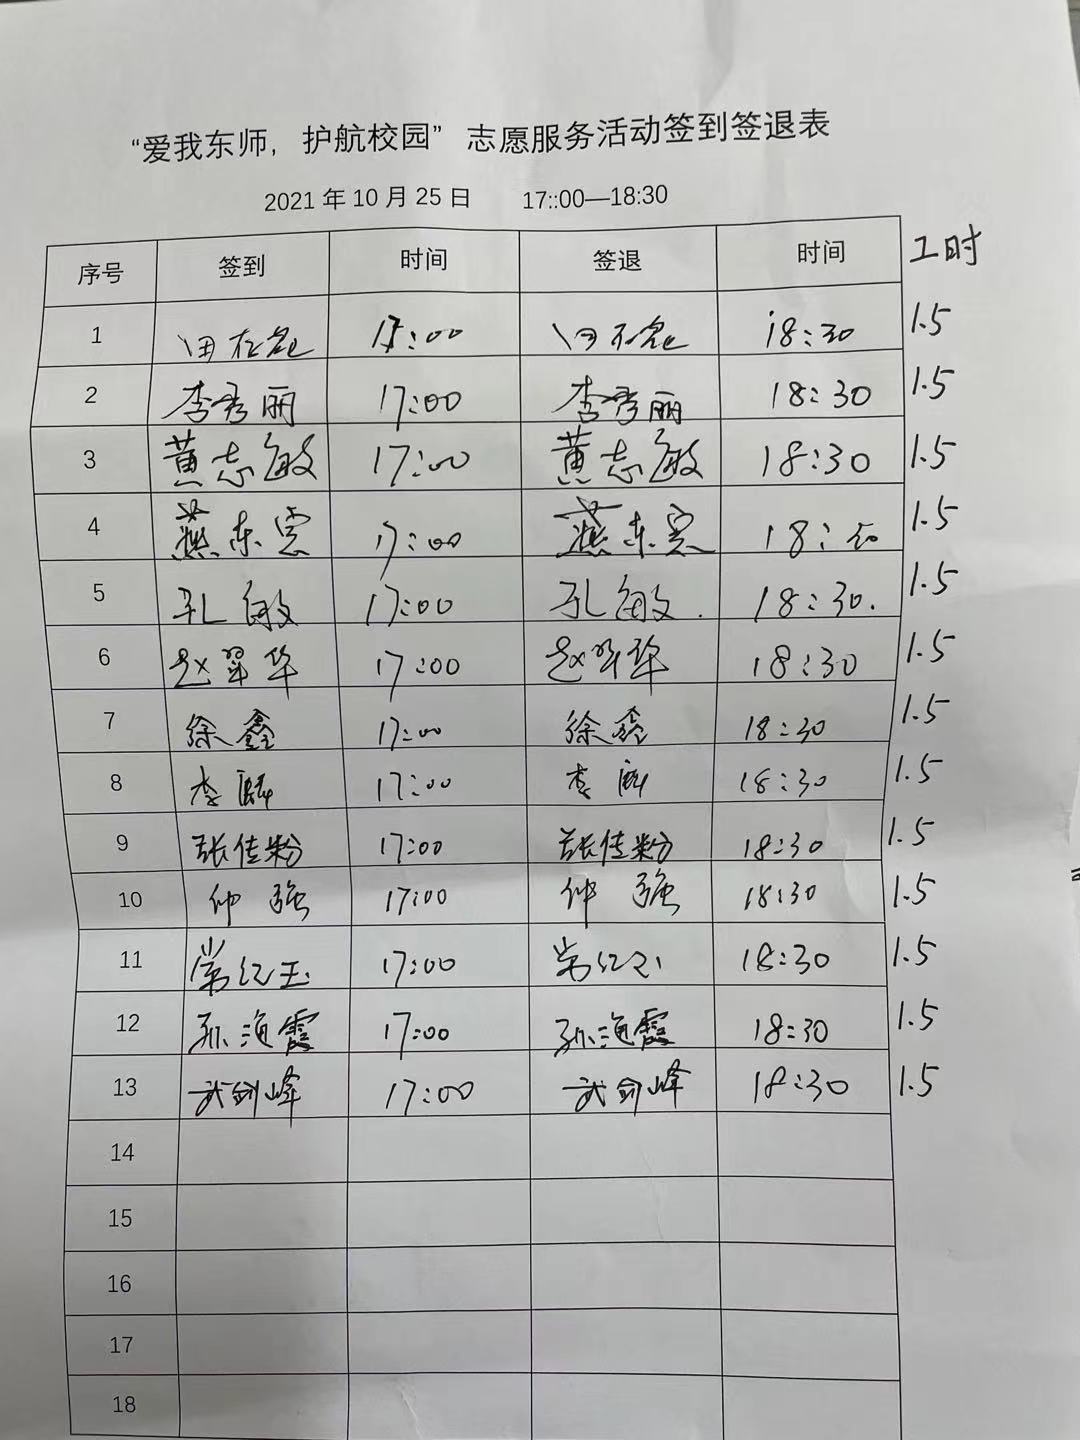 “爱我东师，护航校园” 志愿服务活动签到签退表
2021 年 10 月 25 日 17::00—18:30
序号 签到 时间 签退 时间 工时
1 田 17:00 田 18:30 1.5
2 李秀丽 17:00 李秀丽 18:30 1.5
3 黄志敏 17:00 黄志敏 18:30 1.5
4 燕东 17:00 燕东 18:30 1.5
5 孔敏 17:00 孔敏. 18:30. 1.5
6 赵翠华 17:00 赵翠华 18:30 1.5
7 徐鑫 17:00 徐鑫 18:30 1.5
8 李 17:00 李 18:30 1.5
9 张佳粉 17:00 张佳粉 18:30 1.5
10 仲强 17:00 仲强 18:30 1.5
11 常红玉 17:00 常红玉 18:30 1.5
12 孙海霞 17:00 孙海霞 18:30 1.5
13 武剑峰 17:00 武剑峰 18:30 1.5
14
15
16
17
18